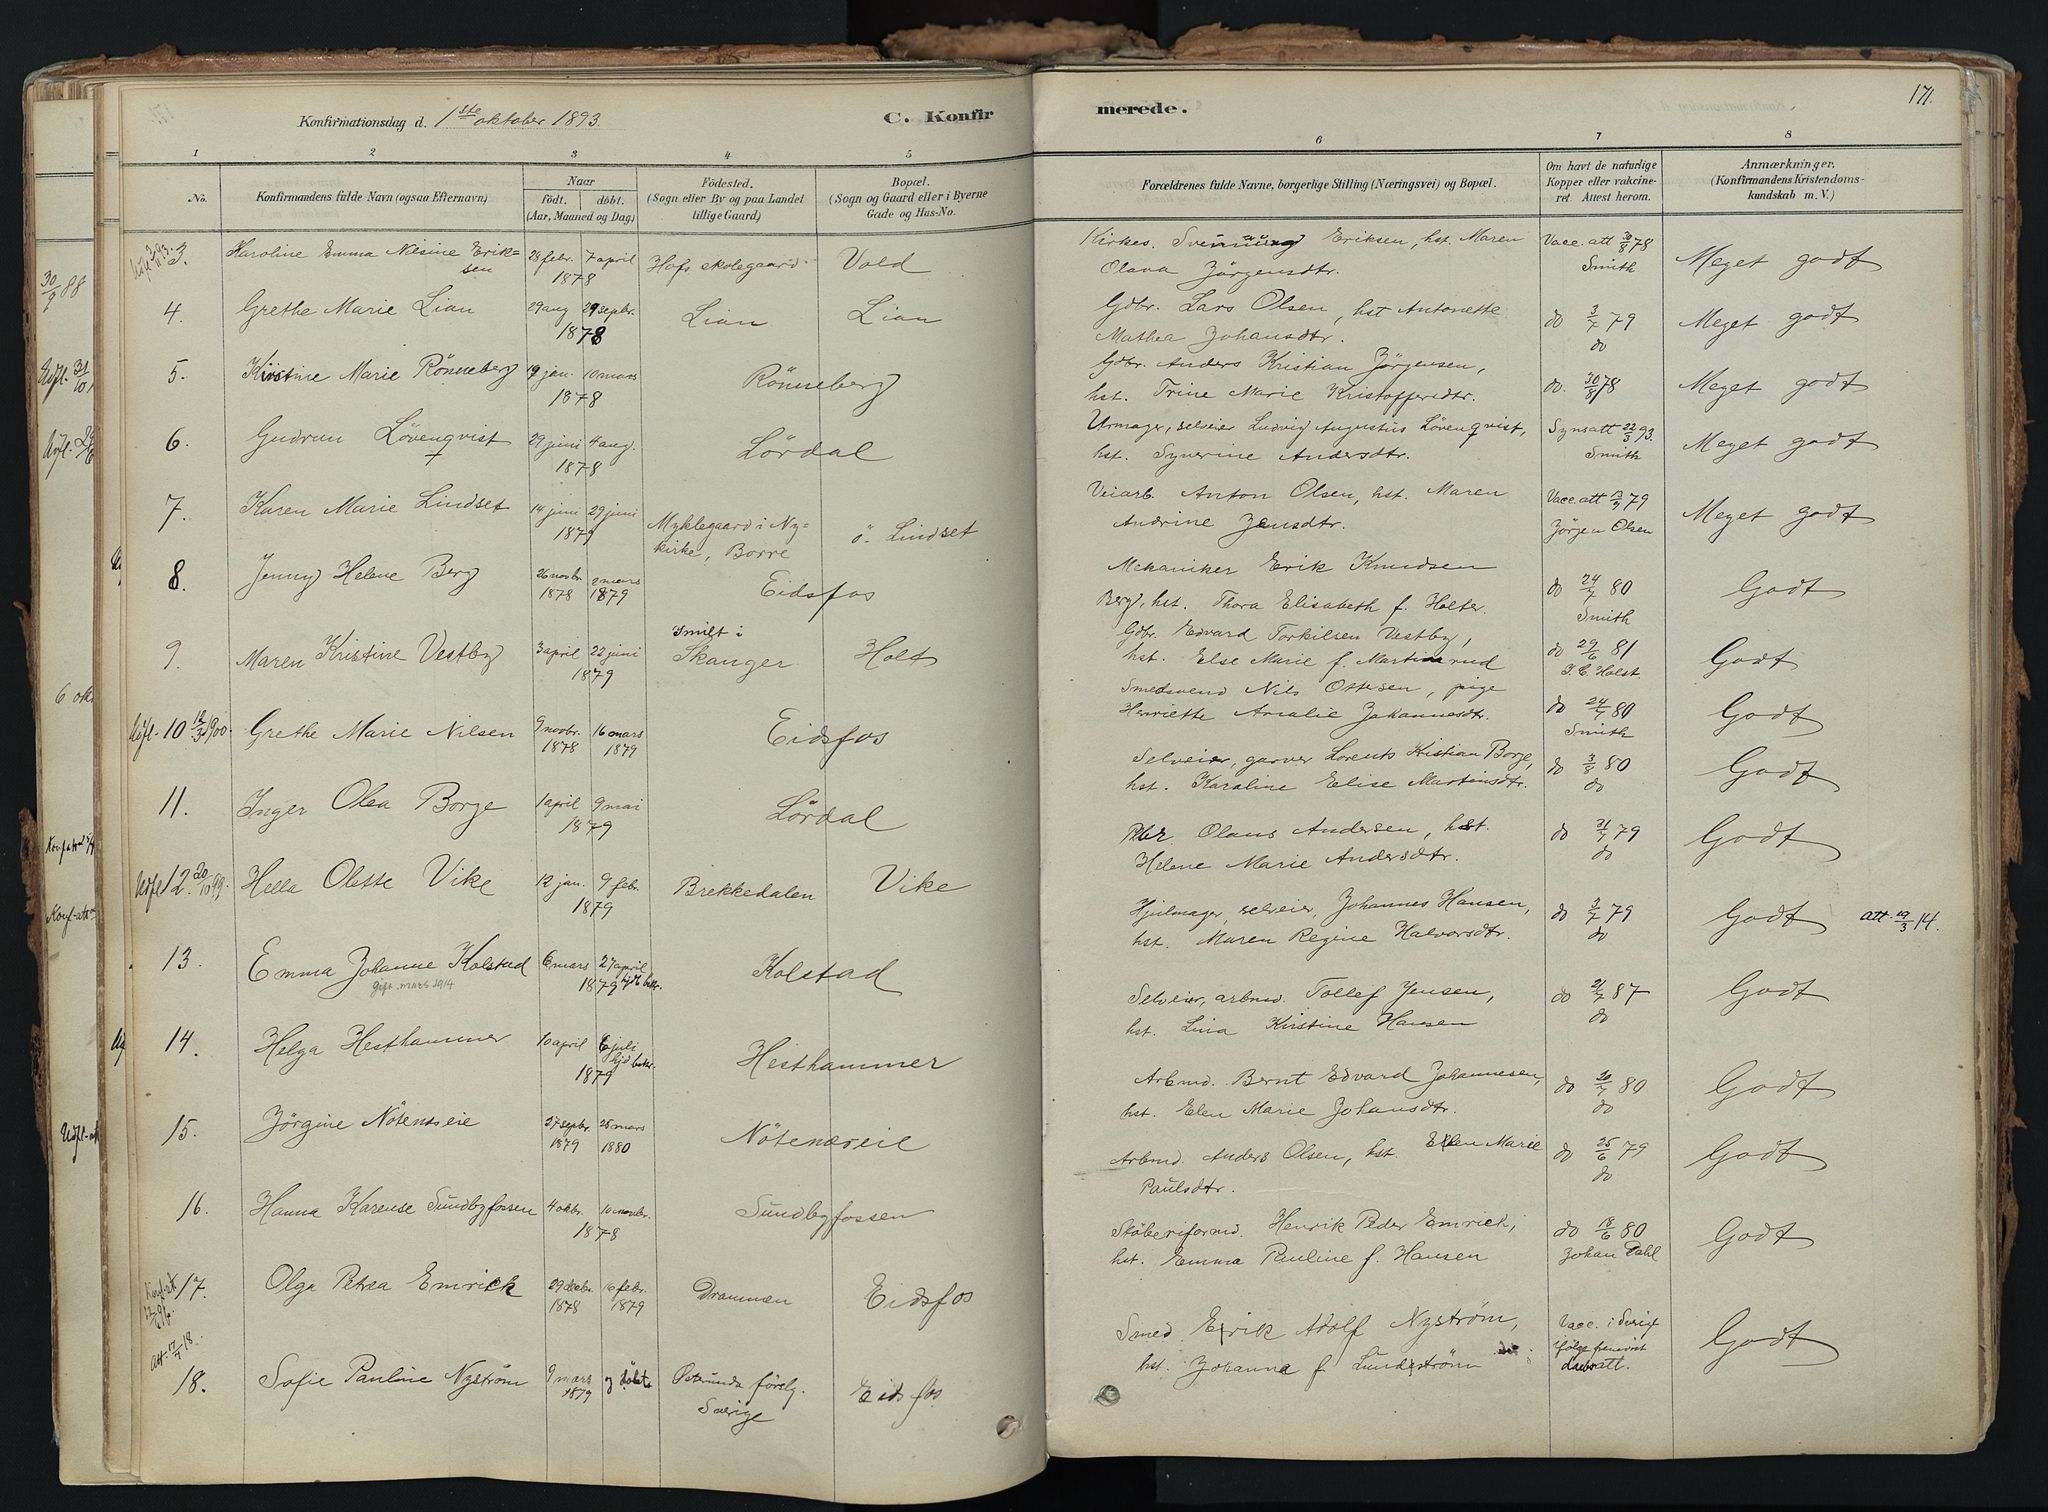 Konfirmationsdag d. 1ste oktober 1893. C. Konfirmerede. 171.
1 2 3 4 5 6 7 8
No. Konfirmandens fulde Navn (ogsaa Efternavn) Naar født. døbt. (Aar, Maaned og Dag) Födested. (Sogn eller By og paa Landet tillige Gaard) Bopæl. (Sogn og Gaard eller i Byerne Gade og Hus-No. Forældrenes fulde Navne, borgerlige Stilling (Næringsvei) og Bopæl. Om havt de naturlige Kopper eller vakcineret. Attest herom. Anmærkninger. (Konfirmandens Kristendomskundskab m. V.)
3. Karoline Emma Nisine Eriksen 28 febr. 7 april 1878 Hofs skolegaard Vold Kirkes. Svennung Eriksen, hst. Maren Olava Jörgensdtr. Vacc. att 30/8 78 Smith Meget godt
4. Grethe Marie Lian 29 aug 29 sepbr. 1878 Lian Lian Gdbr. Lars Olsen, hst Antonette Mathea Johansdtr. do 3/7 79 do Meget godt
5. Kirstine Marie Rönneberg 19 jan. 10 mars 1878 Rönneberg Gdbr. Anders Kristian Jörgensen, hst. Trine Marie Kristoffersdtr. do. 30/8 78 Meget godt
6. Gudrun Lövenqvist 29 juni 4 aug. 1878 Lördal Urmager, selveier Ludvig Augustus Lövenqvist, hst. Syverine Andersdtr. Synsatt 22/3 93. Smith Meget godt
7. Karen Marie Lindset 14 juni 29 juni 1879 Myklegaard i Nykirke, Borre ö. Lindset Veiarb. Anton Olsen, hst. Maren Andrine Jensdtr. Vacc. att 13/9 79 Jörgen Olsen Meget godt
8. Jenny Helene Berg 26 novbr. 1878 2 mars 1879 Eidsfos Mekaniker Erik Knudsen Berg, hst. Thora Elisabeth f. Holter. do 24/7 80 Smith Godt
9. Maren Kristine Vestby 3 april 22 juni 1879 Smilt i Skanger Holt Gdbr. Edvard Torkilsen Vestby, hst. Else Marie f. Martinsrud do 29/6 81 Holst. Godt
Udfl. 10 12/3 1900. Grethe Marie Nilsen 9 novbr. 1878 16 mars 1879 Eidsfos Smedsvend Nils Ottesen, pige Henriette Amalie Johannesdtr. do 24/7 80 Smith Godt
11. Inger Olea Borge 1 april 9 mai 1879 Lördal Selveier, garver Lorents Kristian Borge, hst. Karoline Elise Martinsdtr. do 3/8 80 do Godt
Udfl 12. 20/10 99. Hella Olette Vike 12 jan. 9 febr. 1879 Brekkedalen Vike Olaus Andersen, hst. Helene Marie Andersdtr. do 31/7 79 do Godt
13. Emma Johanne Kolstad 6 mars 27 april 1879 hjdt bekr. Kolstad Hjulmager, selveier Johannes Hansen, hst. Maren Regine Halvorsdtr. do 3/7 79 do Godt att. 19/3 14.
Gift. mars 1914
14. Helga Hesthammer 10 april 6 juli 1879 hjd bekr. Hesthammer Selveier, arbmd. Tollef Jensen, hst. Lina Kirstine Hansen do 21/7 87 do Godt
15. Jörgine Nötenseie 27 sepbr. 1879 28 mars 1880 Nötenæseie Arbmd. Bernt Edvard Johannesen, hst. Elen Marie Johansdtr. do 20/7 80 do Godt
16. Hanna Karense Sundbyfossen 4 okbr. 10 novbr. 1878 Sundbyfossen Arbmd. Anders Olsen, hst. Ellen Marie Paulsdtr. do 25/6 79 do Godt
17. Olga Petrea Emrick 29 decbr. 1878 16 febr. 1879 Drammen Eidsfos Stöberiformd. Henrik Peder Emrick, hst. Emma Pauline f. Hansen do 18/6 80 Johan Dahl Godt
att. 17/4 18.
18. Sofie Pauline Nyström 9 mars 1879 og döbt Östersunda försbg. Sverige Eidsfos Smed Erik Adolf Nyström, hst. Johanna f. Lundström Vacc. i Sverige ifölge Godt
30/9 88
Udfl. 31/10
Udfl.
6 okt
Konf-att
Udfl-att